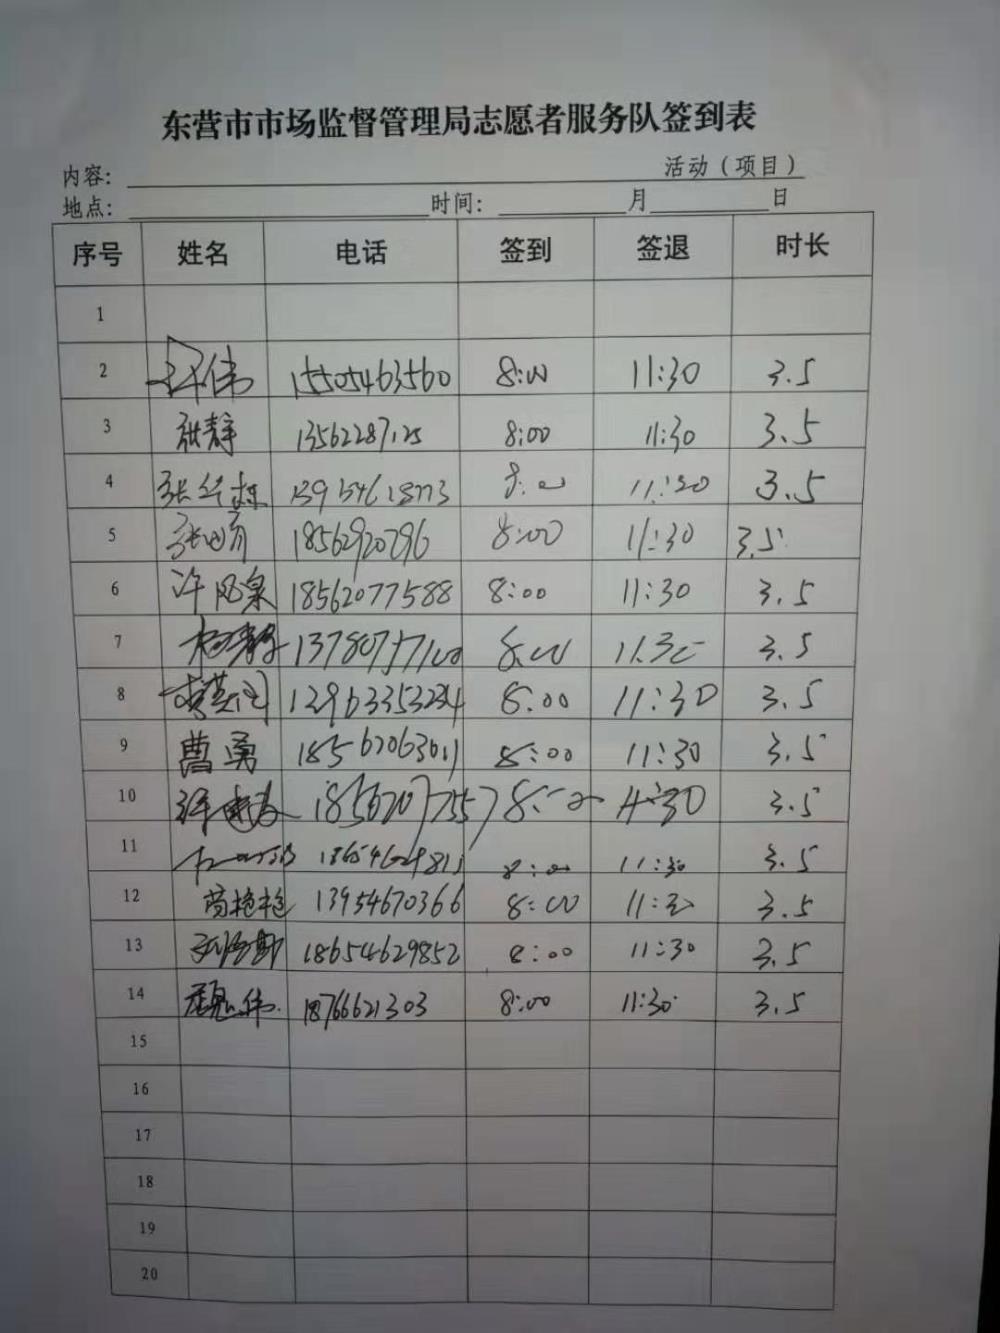 东营市市场监督管理局志愿者服务队签到表
内容: 活动（项目）
地点: 时间: 月 日
序号 姓名 电话 签到 签退 时长
1
2 15505463560 8:00 11:30 3.5
3 张静 13562287125 8:00 11:30 3.5
4 8:00 11:30 3.5
5 18562920296 8:00 11:30 3.5
6 许风泉 18562077588 8:00 11:30 3.5
7 8:00 11.30 3.5
8 8:00 11:30 3.5
9 曹勇 18562063011 8:00 11:30 3.5
10 8:00 11:30 3.5
11 8:00 11:30 3.5
12 苟艳艳 13954670366 8:00 11:30 3.5
13 18654629852 8:00 11:30 3.5
14 18766621303 8:00 11:30 3.5
15
16
17
18
19
20